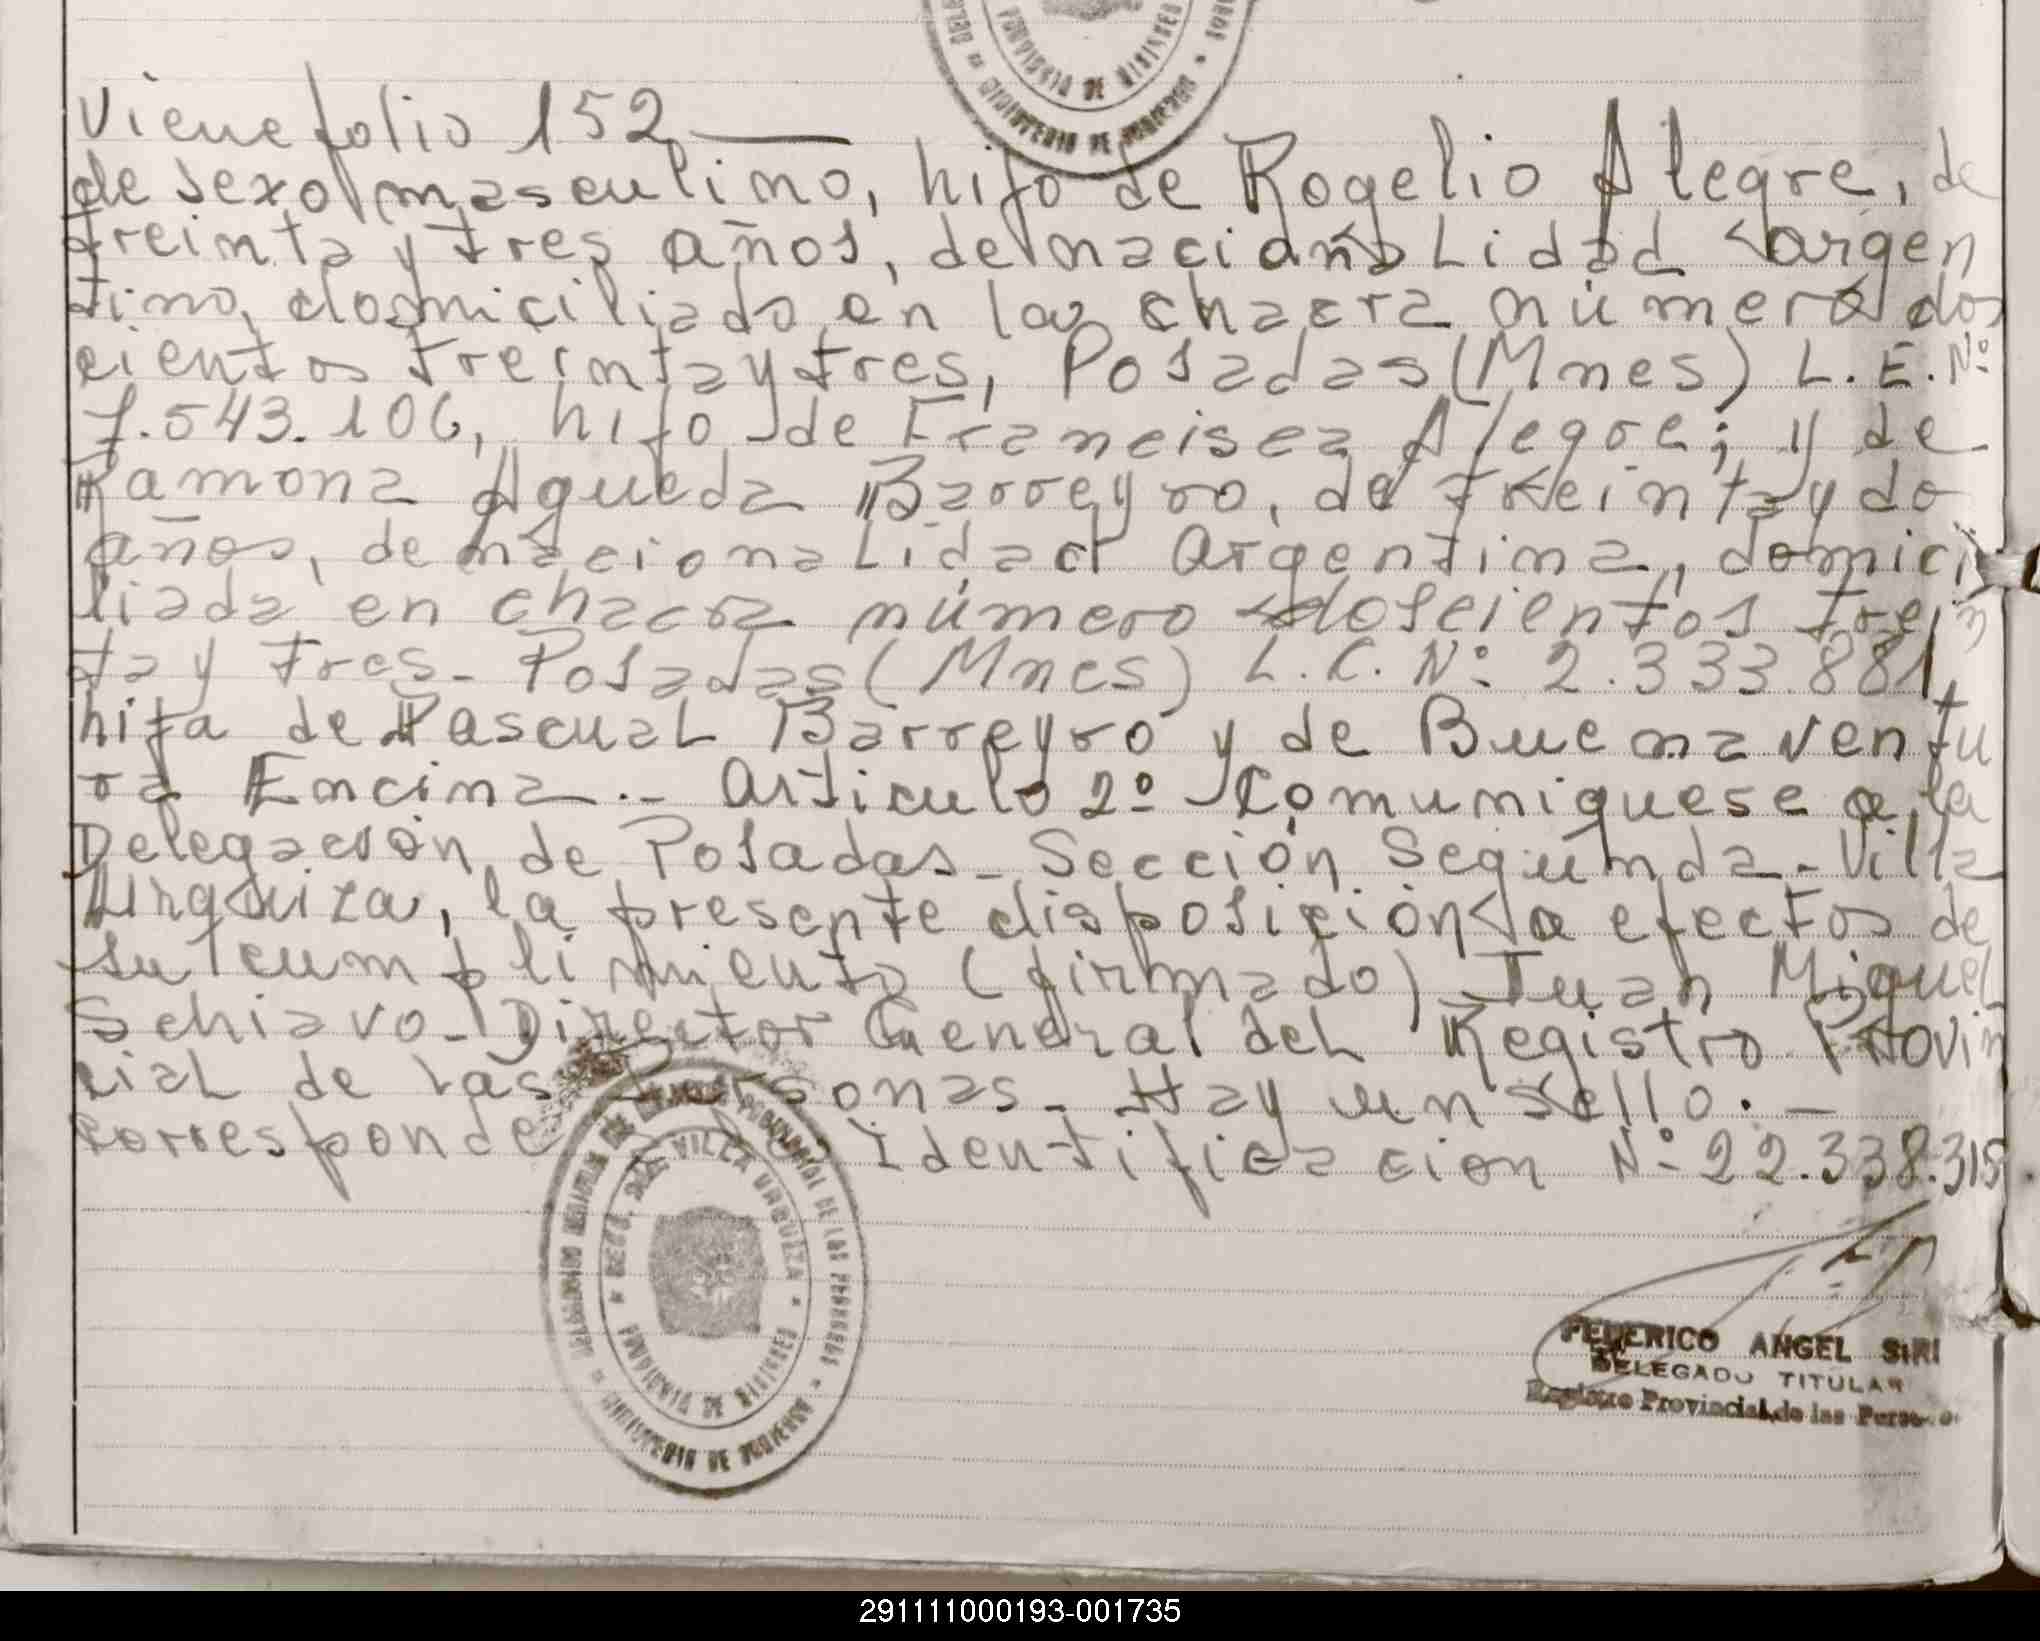 Viene folio 152
de sexo masculino, hijo de Rogelio Alegre, de
treinta y tres años, de nacionalidad argen
tino, domiciliado en la chacra número dos
cientos treinta y tres, Posadas (Mnes) L. E. Nº
7.543.106, hijo de Francisca Alegre; y de
Ramona Agueda Barreyro, de treinta y do
años, de nacionalidad Argentina, domici
liada en chacra número doscientos trein
ta y tres - Posadas (Mnes) L. C. Nº: 2.333.881,
hija de Pascual Barreyro y de Buenaventu
ra Encina.- Articulo 2º Comuniquese a la
Delegación de Posadas - Sección Segunda - Villa
Urquiza, la presente disposición a efectos de
su cumplimiento (firmado) Juan Miguel
Schiavo - Director General del Registro Provin
cial de las Personas - Hay un sello. -
Corresponde Identificacion Nº 22.338.315
VILLA URQUIZA
PROVINCIA DE MISIONES
MINISTERIO DE GOBIERNO
FEDERICO ANGEL SIRI
DELEGADO TITULAR
Registro Provincial de las Perso
291111000193-001735